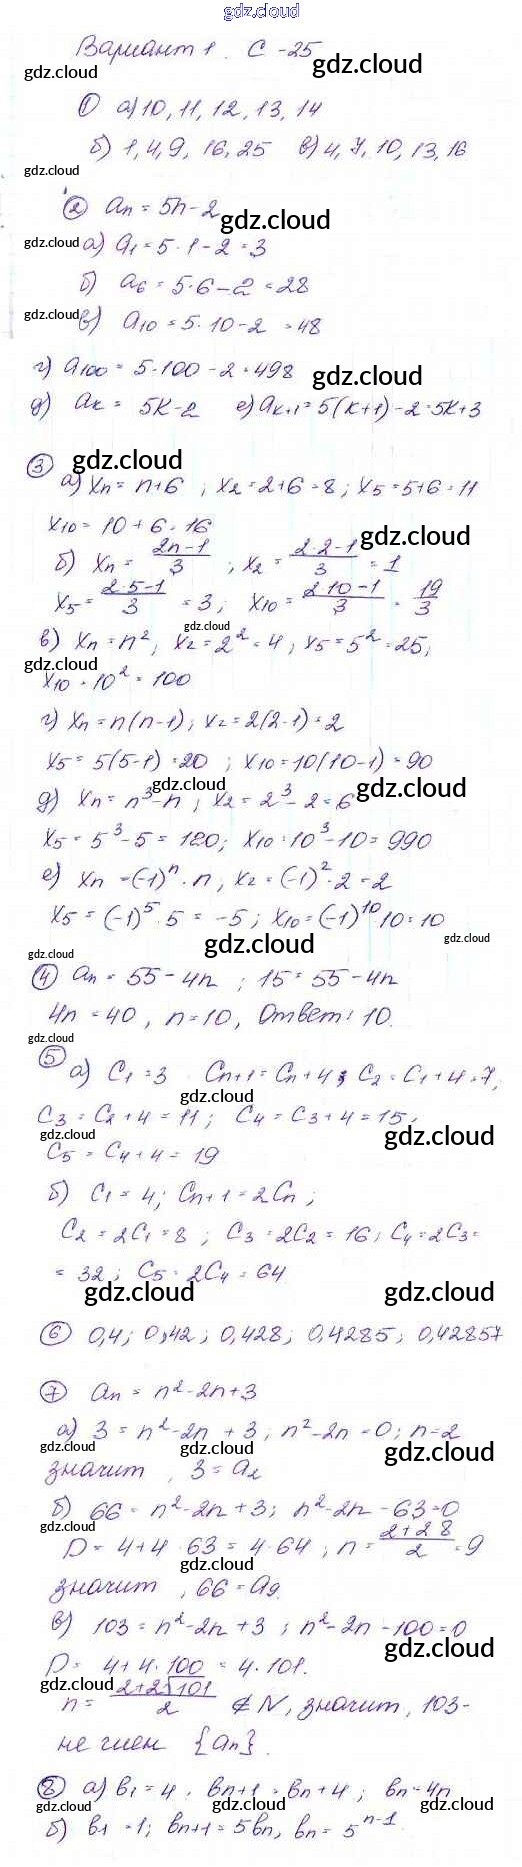 gdz.cloud
Вариант 1. С-25
gdz.cloud gdz.cloud
① а) 10, 11, 12, 13, 14
gdz.cloud gdz.cloud
б) 1, 4, 9, 16, 25 в) 4, 7, 10, 13, 16
gdz.cloud
② an = 5n-2
gdz.cloud
gdz.cloud а) a1 = 5·1-2 = 3
б) a6 = 5·6-2 = 28
gdz.cloud в) a10 = 5·10-2 = 48
г) a100 = 5·100-2 = 498
gdz.cloud
д) aк = 5к-2 е) aк+1 = 5(к+1)-2 = 5к+3
③ gdz.cloud
а) xn = n+6; x2 = 2+6 = 8; x5 = 5+6 = 11
x10 = 10+6 = 16
gdz.cloud
б) xn = (2n-1)/3, x2 = (2·2-1)/3 = 1
x5 = (2·5-1)/3 = 3; x10 = (2·10-1)/3 = 19/3
gdz.cloud
в) xn = n², x2 = 2² = 4; x5 = 5² = 25;
gdz.cloud
x10 = 10² = 100
г) xn = n(n-1); x2 = 2(2-1) = 2
x5 = 5(5-1) = 20; x10 = 10(10-1) = 90
gdz.cloud gdz.cloud
д) xn = n³-n; x2 = 2³-2 = 6
x5 = 5³-5 = 120; x10 = 10³-10 = 990
е) xn = (-1)ⁿ·n, x2 = (-1)²·2 = 2
x5 = (-1)⁵·5 = -5; x10 = (-1)¹⁰·10 = 10
gdz.cloud gdz.cloud
gdz.cloud
④ an = 55-4n; 15 = 55-4n
4n = 40, n = 10, Ответ: 10.
gdz.cloud
⑤ а) C1 = 3 Cn+1 = Cn+4; C2 = C1+4 = 7,
gdz.cloud
C3 = C2+4 = 11; C4 = C3+4 = 15;
gdz.cloud gdz.cloud
C5 = C4+4 = 19
б) C1 = 4; Cn+1 = 2Cn;
C2 = 2C1 = 8; C3 = 2C2 = 16; C4 = 2C3 =
= 32; C5 = 2C4 = 64
gdz.cloud gdz.cloud
⑥ 0,4; 0,42; 0,428; 0,4285; 0,42857
⑦ an = n²-2n+3
а) 3 = n²-2n+3; n²-2n = 0; n = 2
gdz.cloud gdz.cloud gdz.cloud
значит, 3 = a2
б) 66 = n²-2n+3; n²-2n-63 = 0
gdz.cloud
D = 4+4·63 = 4·64; n = (2+2·8)/2 = 9
gdz.cloud
значит, 66 = a9.
в) 103 = n²-2n+3; n²-2n-100 = 0
gdz.cloud gdz.cloud
D = 4+4·100 = 4·101.
gdz.cloud gdz.cloud
n = (2+2√101)/2 ∉ N, значит, 103-
не член {an}.
⑧ а) b1 = 4, bn+1 = bn+4; bn = 4n
gdz.cloud gdz.cloud gdz.cloud
б) b1 = 1; bn+1 = 5bn, bn = 5ⁿ⁻¹.